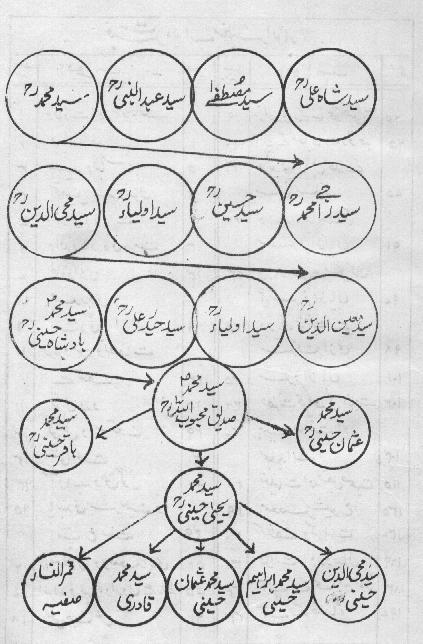 سید شاہ علیؒ
سید مصطفےٰ
سید عبدالنبیؒ
سید محمدؒ
سید راجے محمدؒ
سید حسینؒ
سید اولیاءؒ
سید محی الدینؒ
سید معین الدینؒ
سید اولیاءؒ
سید حیدر علیؒ
سید محمد
بادشاہ حسینیؒ
سید محمد
صدیق محبوب اللہؒ
سید محمد
عثمان حسینیؒ
سید محمد
باقر حسینیؒ
سید محمد
یحییٰ حسینیؒ
سید محی الدین
حسینی
سید محمد ابراہیم
حسینی
سید محمد عثمان
حسینی
سید محمد
قادری
قمر النساء
صفیہ